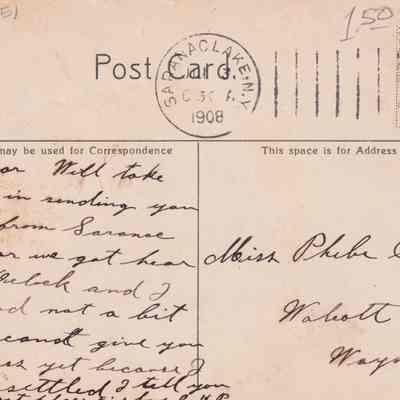 1.50
Post Card.
SARANAC LAKE, N.Y.
1908
may be used for Correspondence
This space is for Address
Will take
in sending you
from Saranac
we got hear
and I
not a bit
give you
yet because I
settled I tell you
Miss Phebe
Walcott
Way